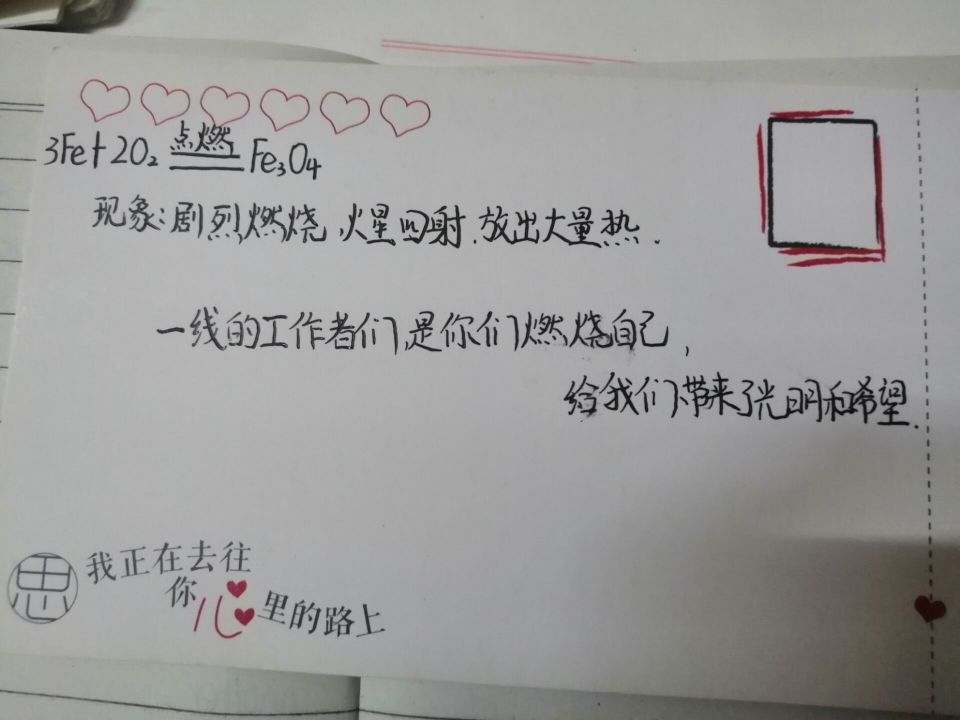 3Fe+2O₂ 点燃 Fe₃O₄
现象:剧烈燃烧,火星四射.放出大量热.
一线的工作者们,是你们燃烧自己,
给我们带来了光明和希望.
思
我正在去往
你心里的路上